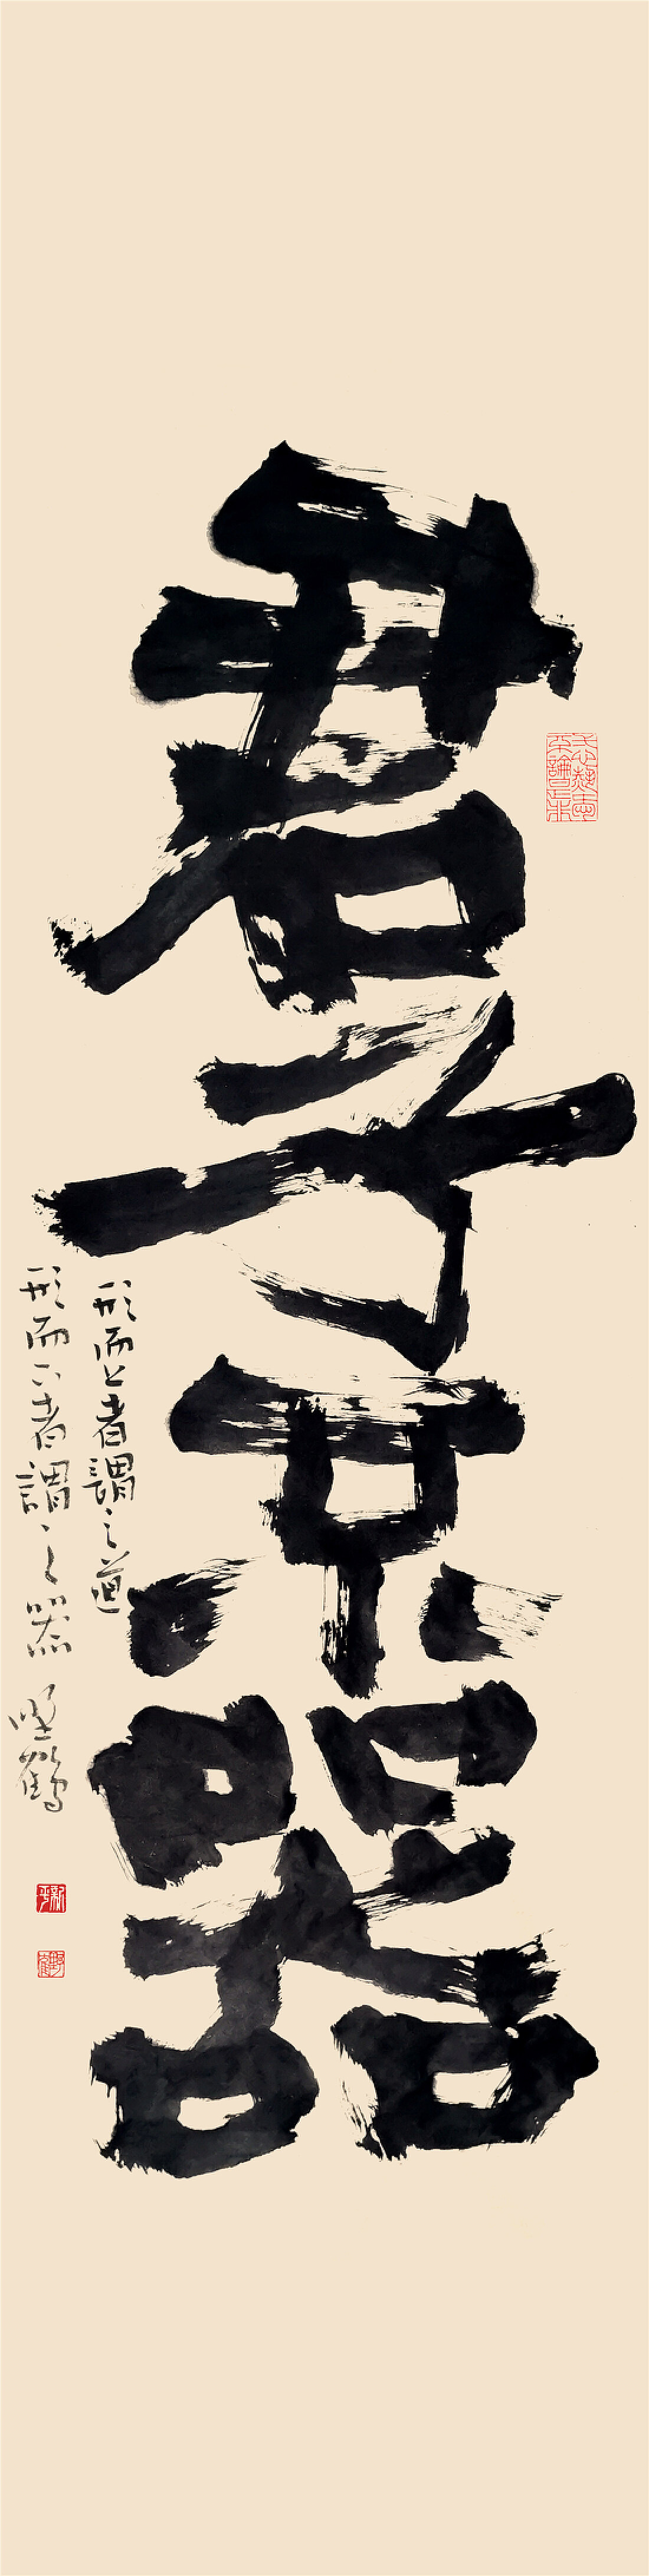 君子不器
形而上者謂之道
形而下者謂之器 野鶴